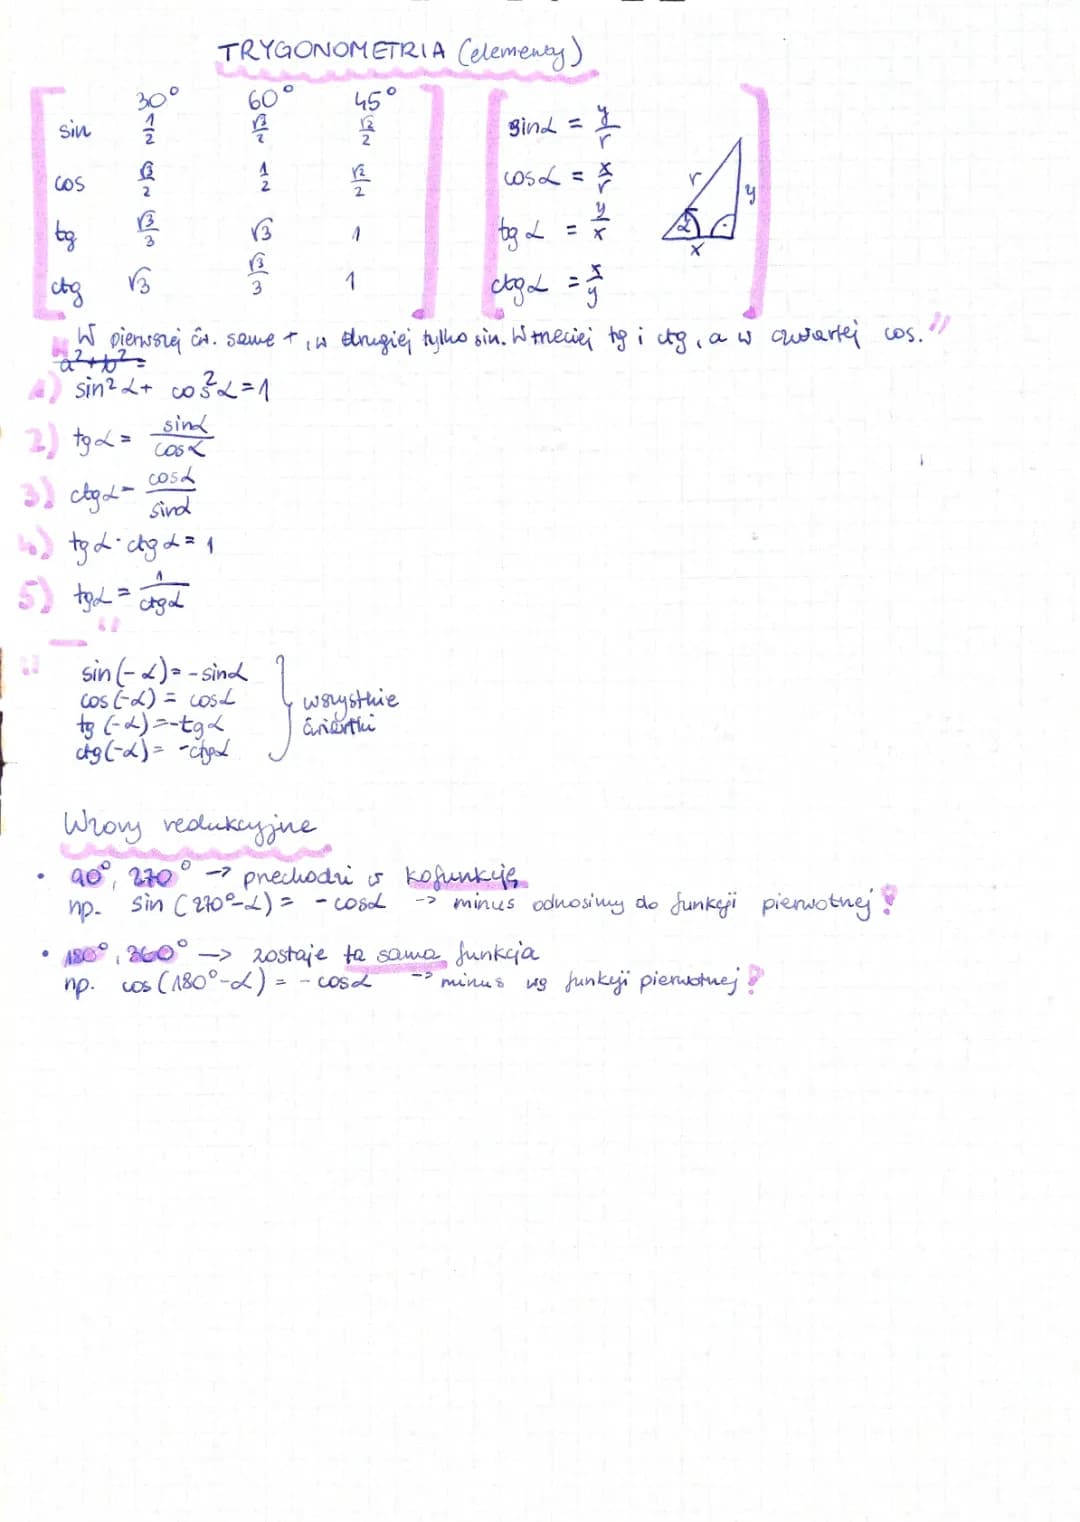 TRYGONOMETRIA (elementy)
30° 60° 45°
sin 1/2 √3/2 √2/2
cos √3/2 1/2 √2/2
tg √3/3 √3 1
ctg √3 √3/3 1
sinα = y/r
cosα = x/r
tg α = y/x
ctgα = x/y
r y α x
W pierwszej ćw. same +, w drugiej tylko sin. W trzeciej tg i ctg, a w czwartej cos."
a²+b²=
1) sin²α + cos²α = 1
2) tgα = sinα/cosα
3) ctgα = cosα/sinα
4) tgα·ctgα = 1
5) tgα = 1/ctgα
sin(-α) = -sinα
cos(-α) = cosα
tg(-α) = -tgα
ctg(-α) = -ctgα
wszystkie
ćwiartki
Wzory redukcyjne
• 90°, 270° -> przechodzi w kofunkcję
np. sin(270°-α) = -cosα -> minus odnosimy do funkcji pierwotnej!
• 180°, 360° -> zostaje ta sama funkcja
np. cos(180°-α) = -cosα -> minus wg funkcji pierwotnej!